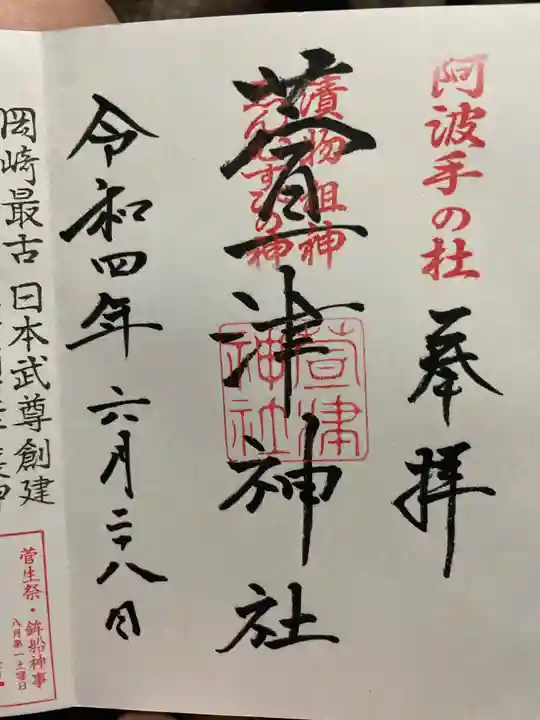 阿波手の杜
奉拝
漬物祖神
えんむすびの神
萱津神社
萱津神社
令和四年六月二十八日
岡崎最古 日本武尊創建
菅生祭・鉾船神事
八月第一土曜日